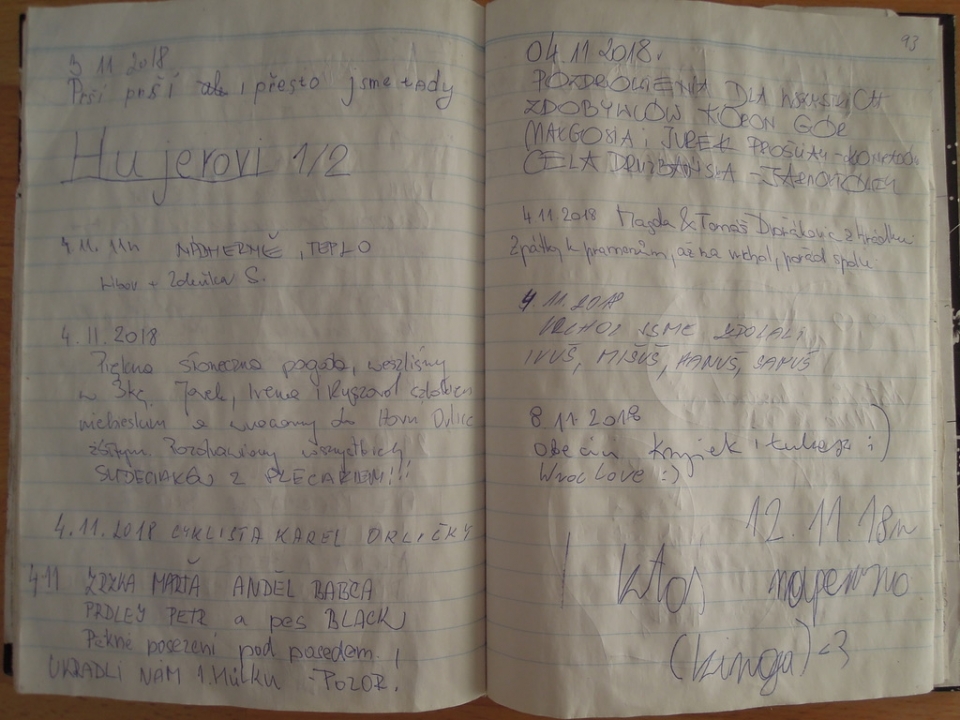 3 11 2018
Prší prší i přesto jsme tady
Hujerovi 1/2
4.11. NÁDHERNĚ, TEPLO
Libor + Zdeňka S.
4.11.2018
Piękna słoneczna pogoda, weszliśmy
w Jarek, Irena i Ryszard szlakiem
niebieskim a wracamy do Horni Dolice
żółtym. Pozdrawiamy wszystkich
SUDECIAKÓW Z PLECAKIEM!!!
4.11.2018 CYKLISTA KAREL ORLIČKÝ
4 11 ZRZKA ANDĚL BABCA
PRDLEJ PETR a pes BLACK
Pěkné posezení pod posedem.
UKRADLI NÁM 1. HŮLKU - POZOR!
93
04.11.2018r
POZDROWIENIA DLA WSZYSTKICH
ZDOBYWCÓW KORON GÓR
MAŁGOSIA i JUREK
4.11.2018 Magda & Tomáš
Zpátky k pramenům, až na vrchol, pořád spolu
4 11.2018
VRCHOL JSME ZDOLALI,
IVUŠ, MIŠUŠ, HANUŠ, SAMUŠ
8 11 2018
obecni Krzysiek i Łukasz :)
Wroc Love :)
12.11.18r
ktoś napewno
(kinga) <3